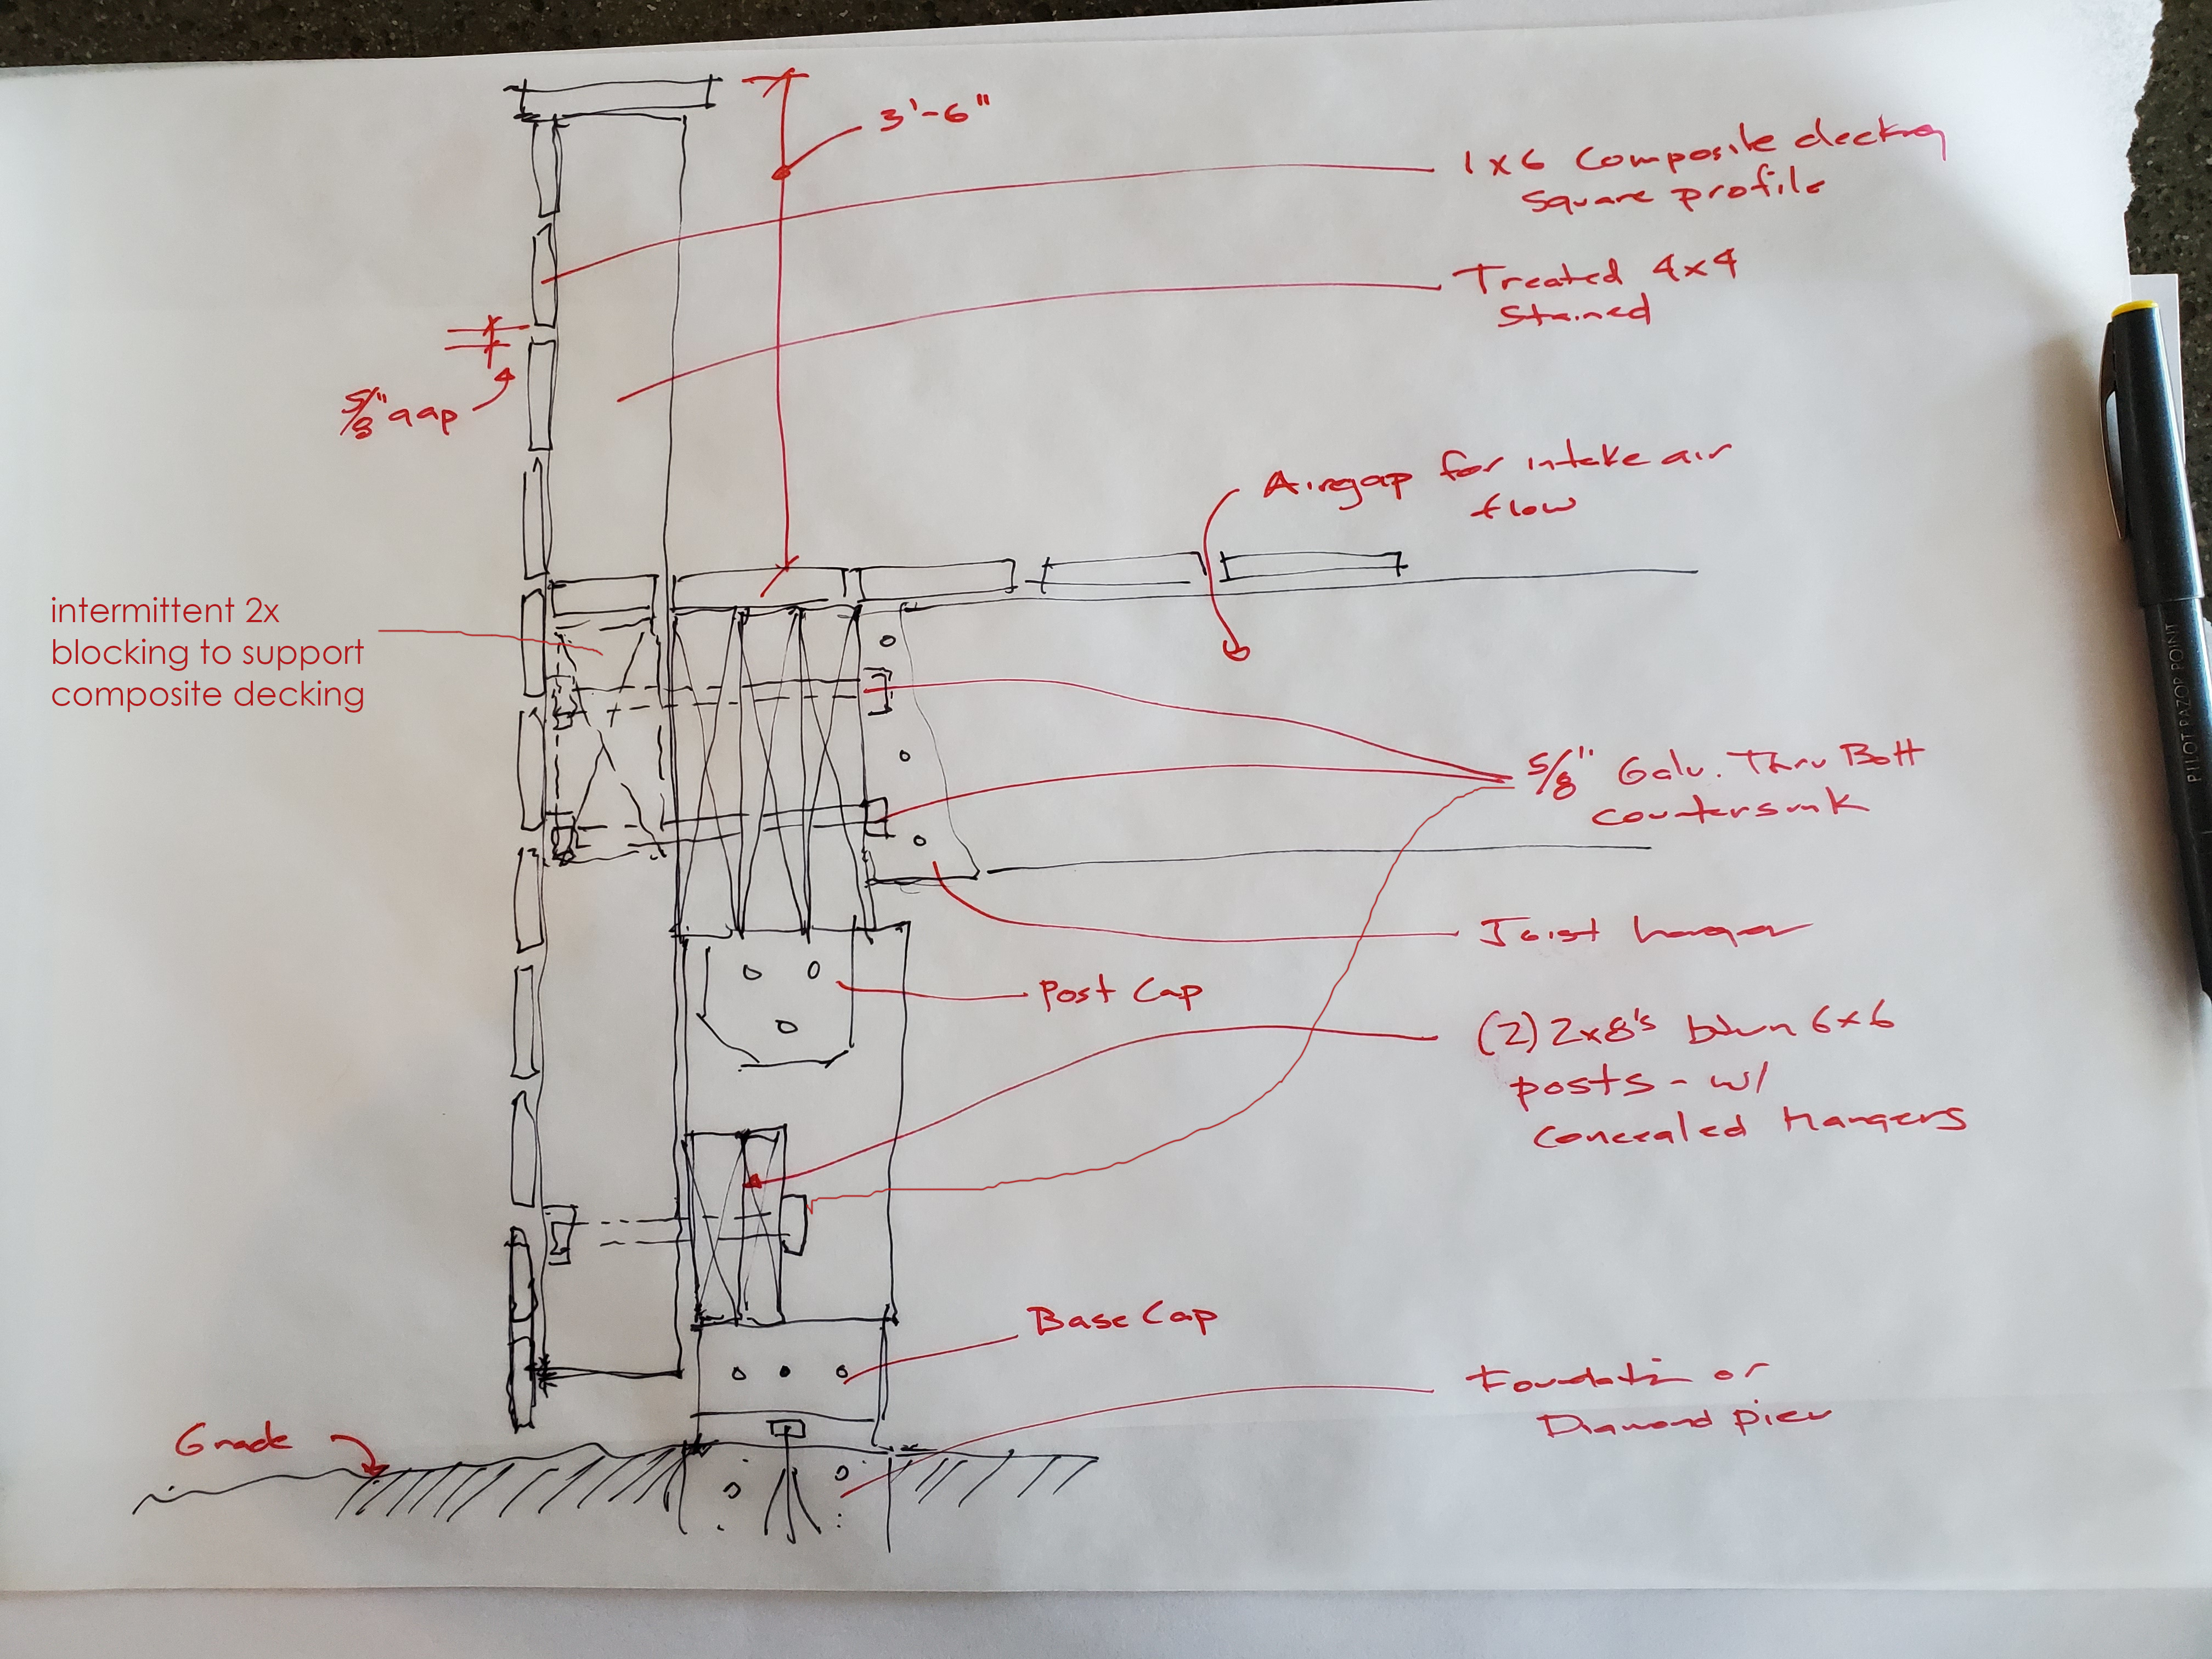 3'-6"
1x6 Composite decking
Square profile
Treated 4x4
Stained
5/8" gap
Airgap for intake air
flow
intermittent 2x
blocking to support
composite decking
5/8" Galv. Thru Bolt
countersunk
Joist hanger
Post Cap
(2) 2x8's btwn 6x6
posts - w/
Concealed Hangers
Base Cap
Foundation or
Diamond pier
Grade
PILOT RAZOR POINT